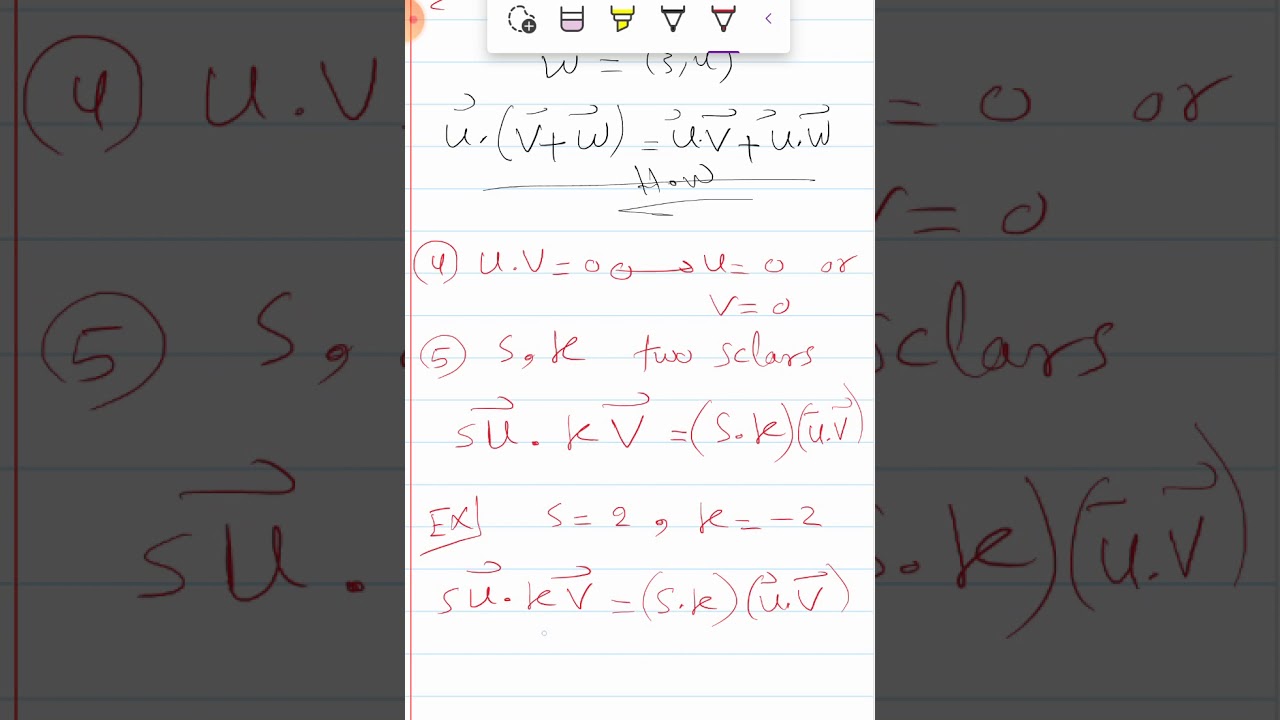 W = (3,4)
u⃗.(v⃗+w⃗) = u⃗.v⃗+u⃗.w⃗
How
④ u.v=0 → u=0 or
v=0
⑤ s,k two sclars
su⃗.kv⃗ =(s.k)(u⃗.v⃗)
EX] s=2 , k=-2
su⃗.kv⃗ =(s.k)(u⃗.v⃗)